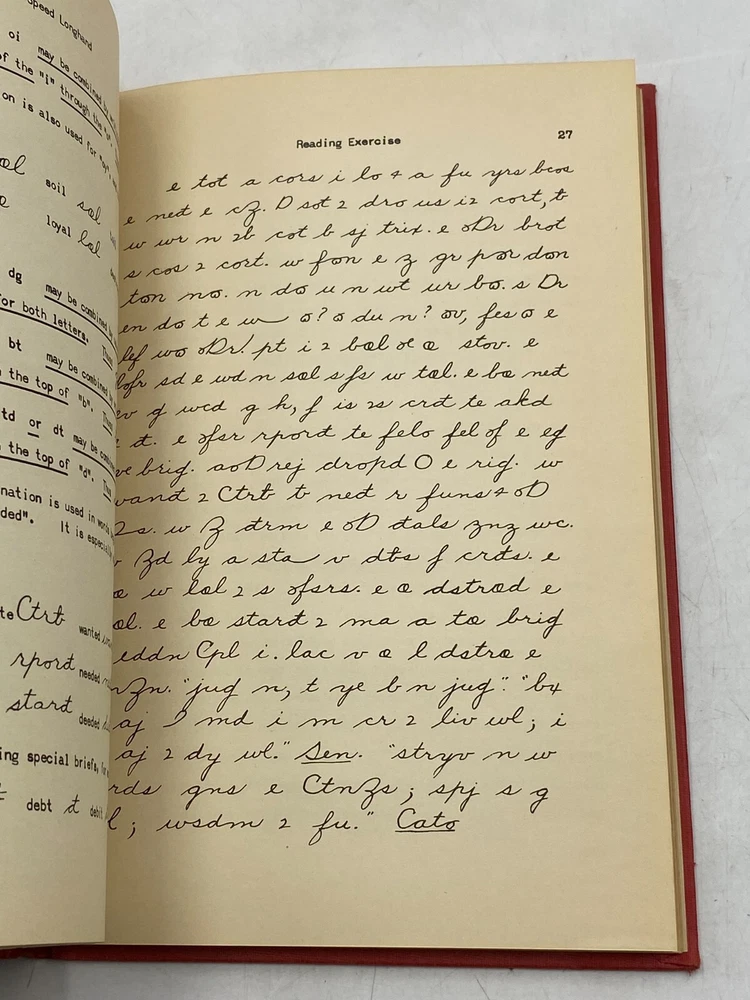 Speed Longhand
oi may be combined by
of the "i" through the
on is also used for "oy"
soil sol
loyal lol
dg may be combined
for both letters. Thus
bt may be combined
the top of "b". Thus
td or dt may be combined
the top of "d". Thus
nation is used in words
ded". It is especially
te Ctrt wanted
rpord needed
start deeded
ing special briefs,
debt debit
Reading Exercise 27
e tot a cors i lo 4 a fu yrs bcos
e ned e cz. D sot 2 dro us i2 cort, t
w wr n 2b cot b sj trix. e oDr brot
s cos 2 cort. w fon e z gr por don
ton no. n do u n wt ur bo. s Dr
en do t e w o? o du n? ov, fes o e
lef wo oDr! pt i 2 bol ol o stov. e
lofr sd e wd n sol sfs w tol. e bo ned
v g wcd g h, f is 2s crd te akd
d. e ofsr rpord te felo fel of e eg
ve brig. aoD rej dropd O e rig. w
wand 2 Ctrt t ned r funs 4 oD
2s. w Z drm e oD dals znz wc.
Zd ly a sta v dts f crds. e
o w lol 2 s ofsrs. e o dstrod e
ol. e bo stard 2 ma a to brig
eddn Cpl i. lac v o l dstro e
nZn. "jug n, t ye b n jug". "b4
aj I md i m cr 2 liv wl; i
aj 2 dy wl." Sen. "stryv n w
rds gns e CtnZs; spj s g
l; wsdm 2 fu." Cato